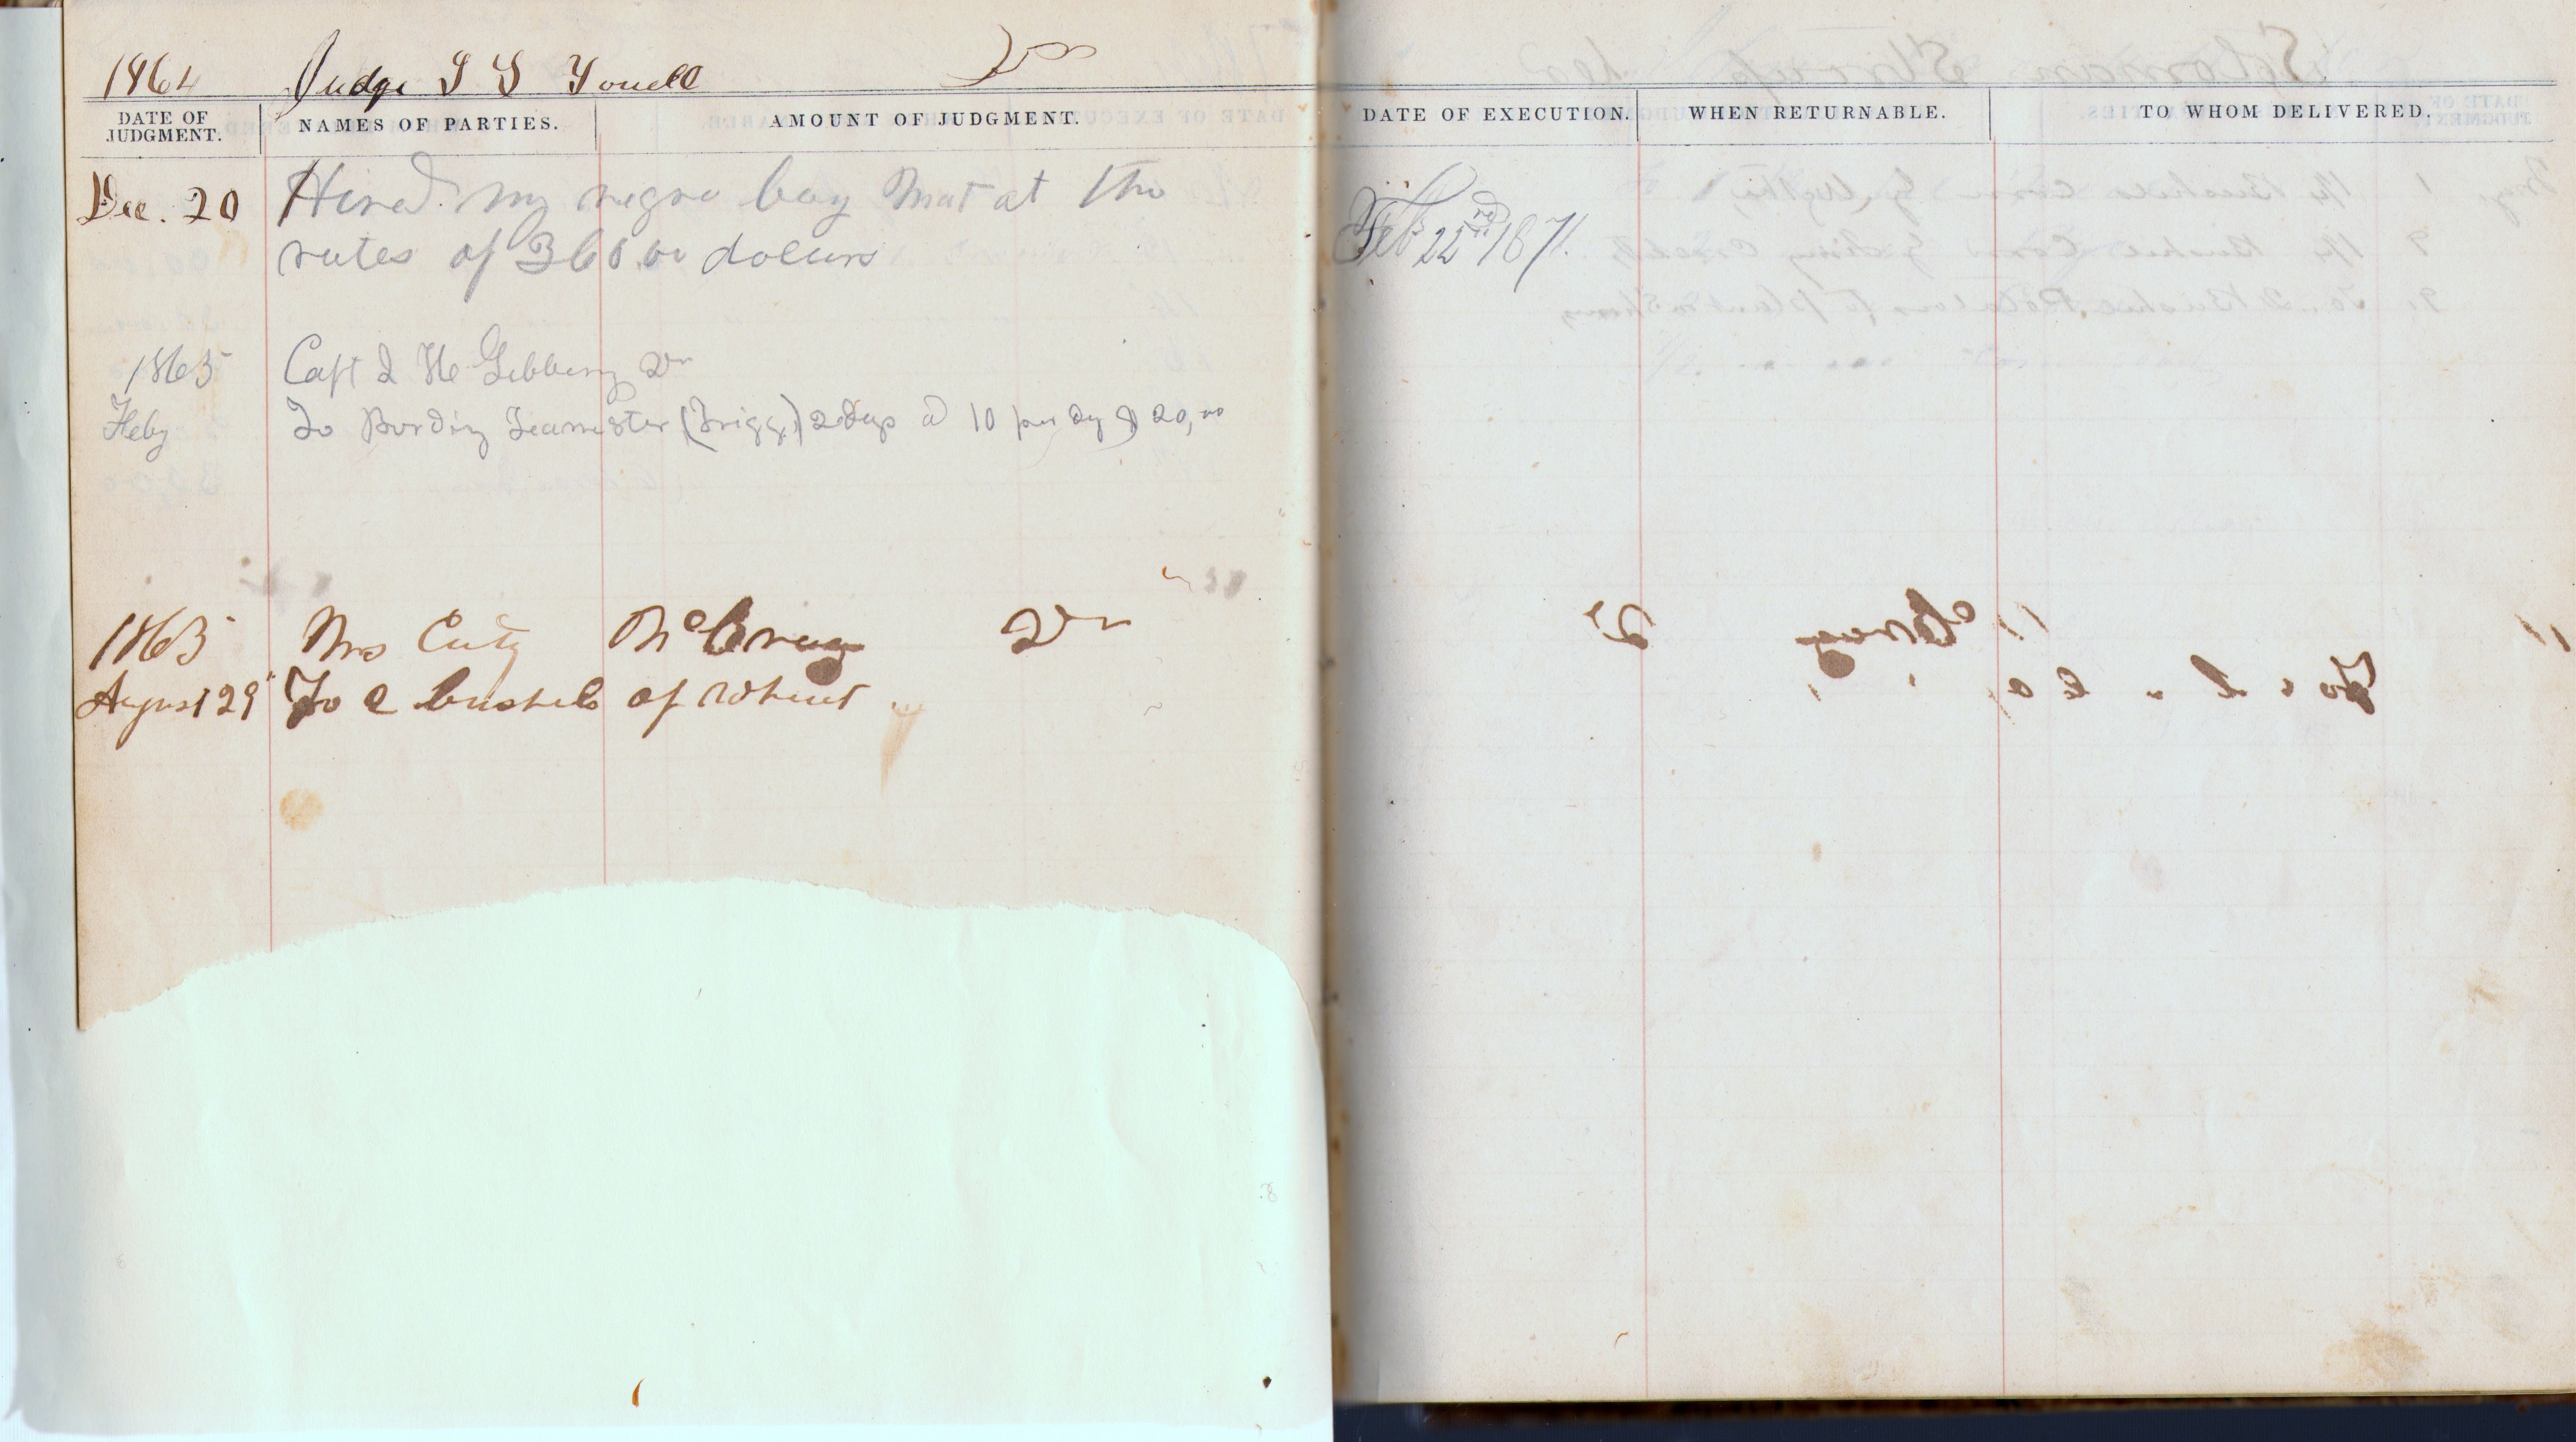 1864 Judge Dr
DATE OF JUDGMENT. NAMES OF PARTIES. AMOUNT OF JUDGMENT.
Dec. 20 Hired my negro boy Mat at the
rates of 360.00 dollars
1865 Capt Dr
Feby To Bording Teamster (Trigg) 2 days @ 10 per Day $ 20,00
1863 Mrs McBray Dr
August 29 To bushels of wheat
DATE OF EXECUTION. WHEN RETURNABLE. TO WHOM DELIVERED.
Feb 22nd 1871.